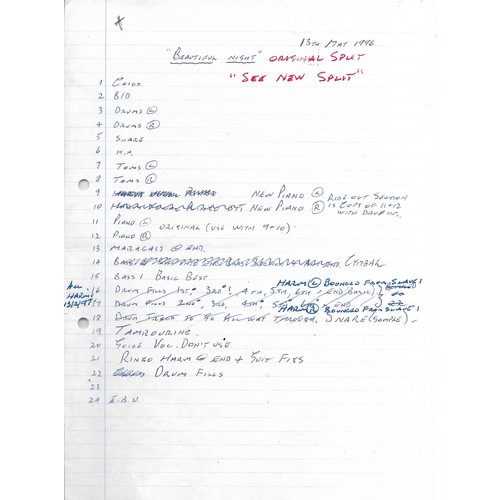 13TH MAY 1996
"BEAUTIFUL NIGHT" ORIGINAL SPLIT
"SEE NEW SPLIT"
1 CLICK
2 B/D
3 DRUMS L
4 DRUMS R
5 SNARE
6 H.H.
7 TOMS L
8 TOMS R
9 NEW PIANO L RIDE OUT SECTION
10 NEW PIANO R IS COPY OF 11+12
WITH DROP INS.
11 PIANO L ORIGINAL (USE WITH 9+10)
12 PIANO R
13 MARACASS @ END.
14 GUITAR
15 BASS 1 BASIC BEST
HARM L BOUNCED FROM SLAVE 1
16 DRUM FILLS 1ST, 3RD, 4TH, 5TH, 6TH, END (BASIC)
17 DRUM FILLS 2ND, 3RD, 4TH, 5TH, 6TH, END
HARM R BOUNCED FROM SLAVE 1
ALL
HARMS
18 DRUM TRACK TO GO ALL WAY THROUGH, SNARE (SAMPLE)
19 TAMBOURINE.
20 GUIDE VOC. DON'T USE
21 RINGO HARM @ END + GUIT FIGS
22 DRUM FILLS
23
24 E.B.U.